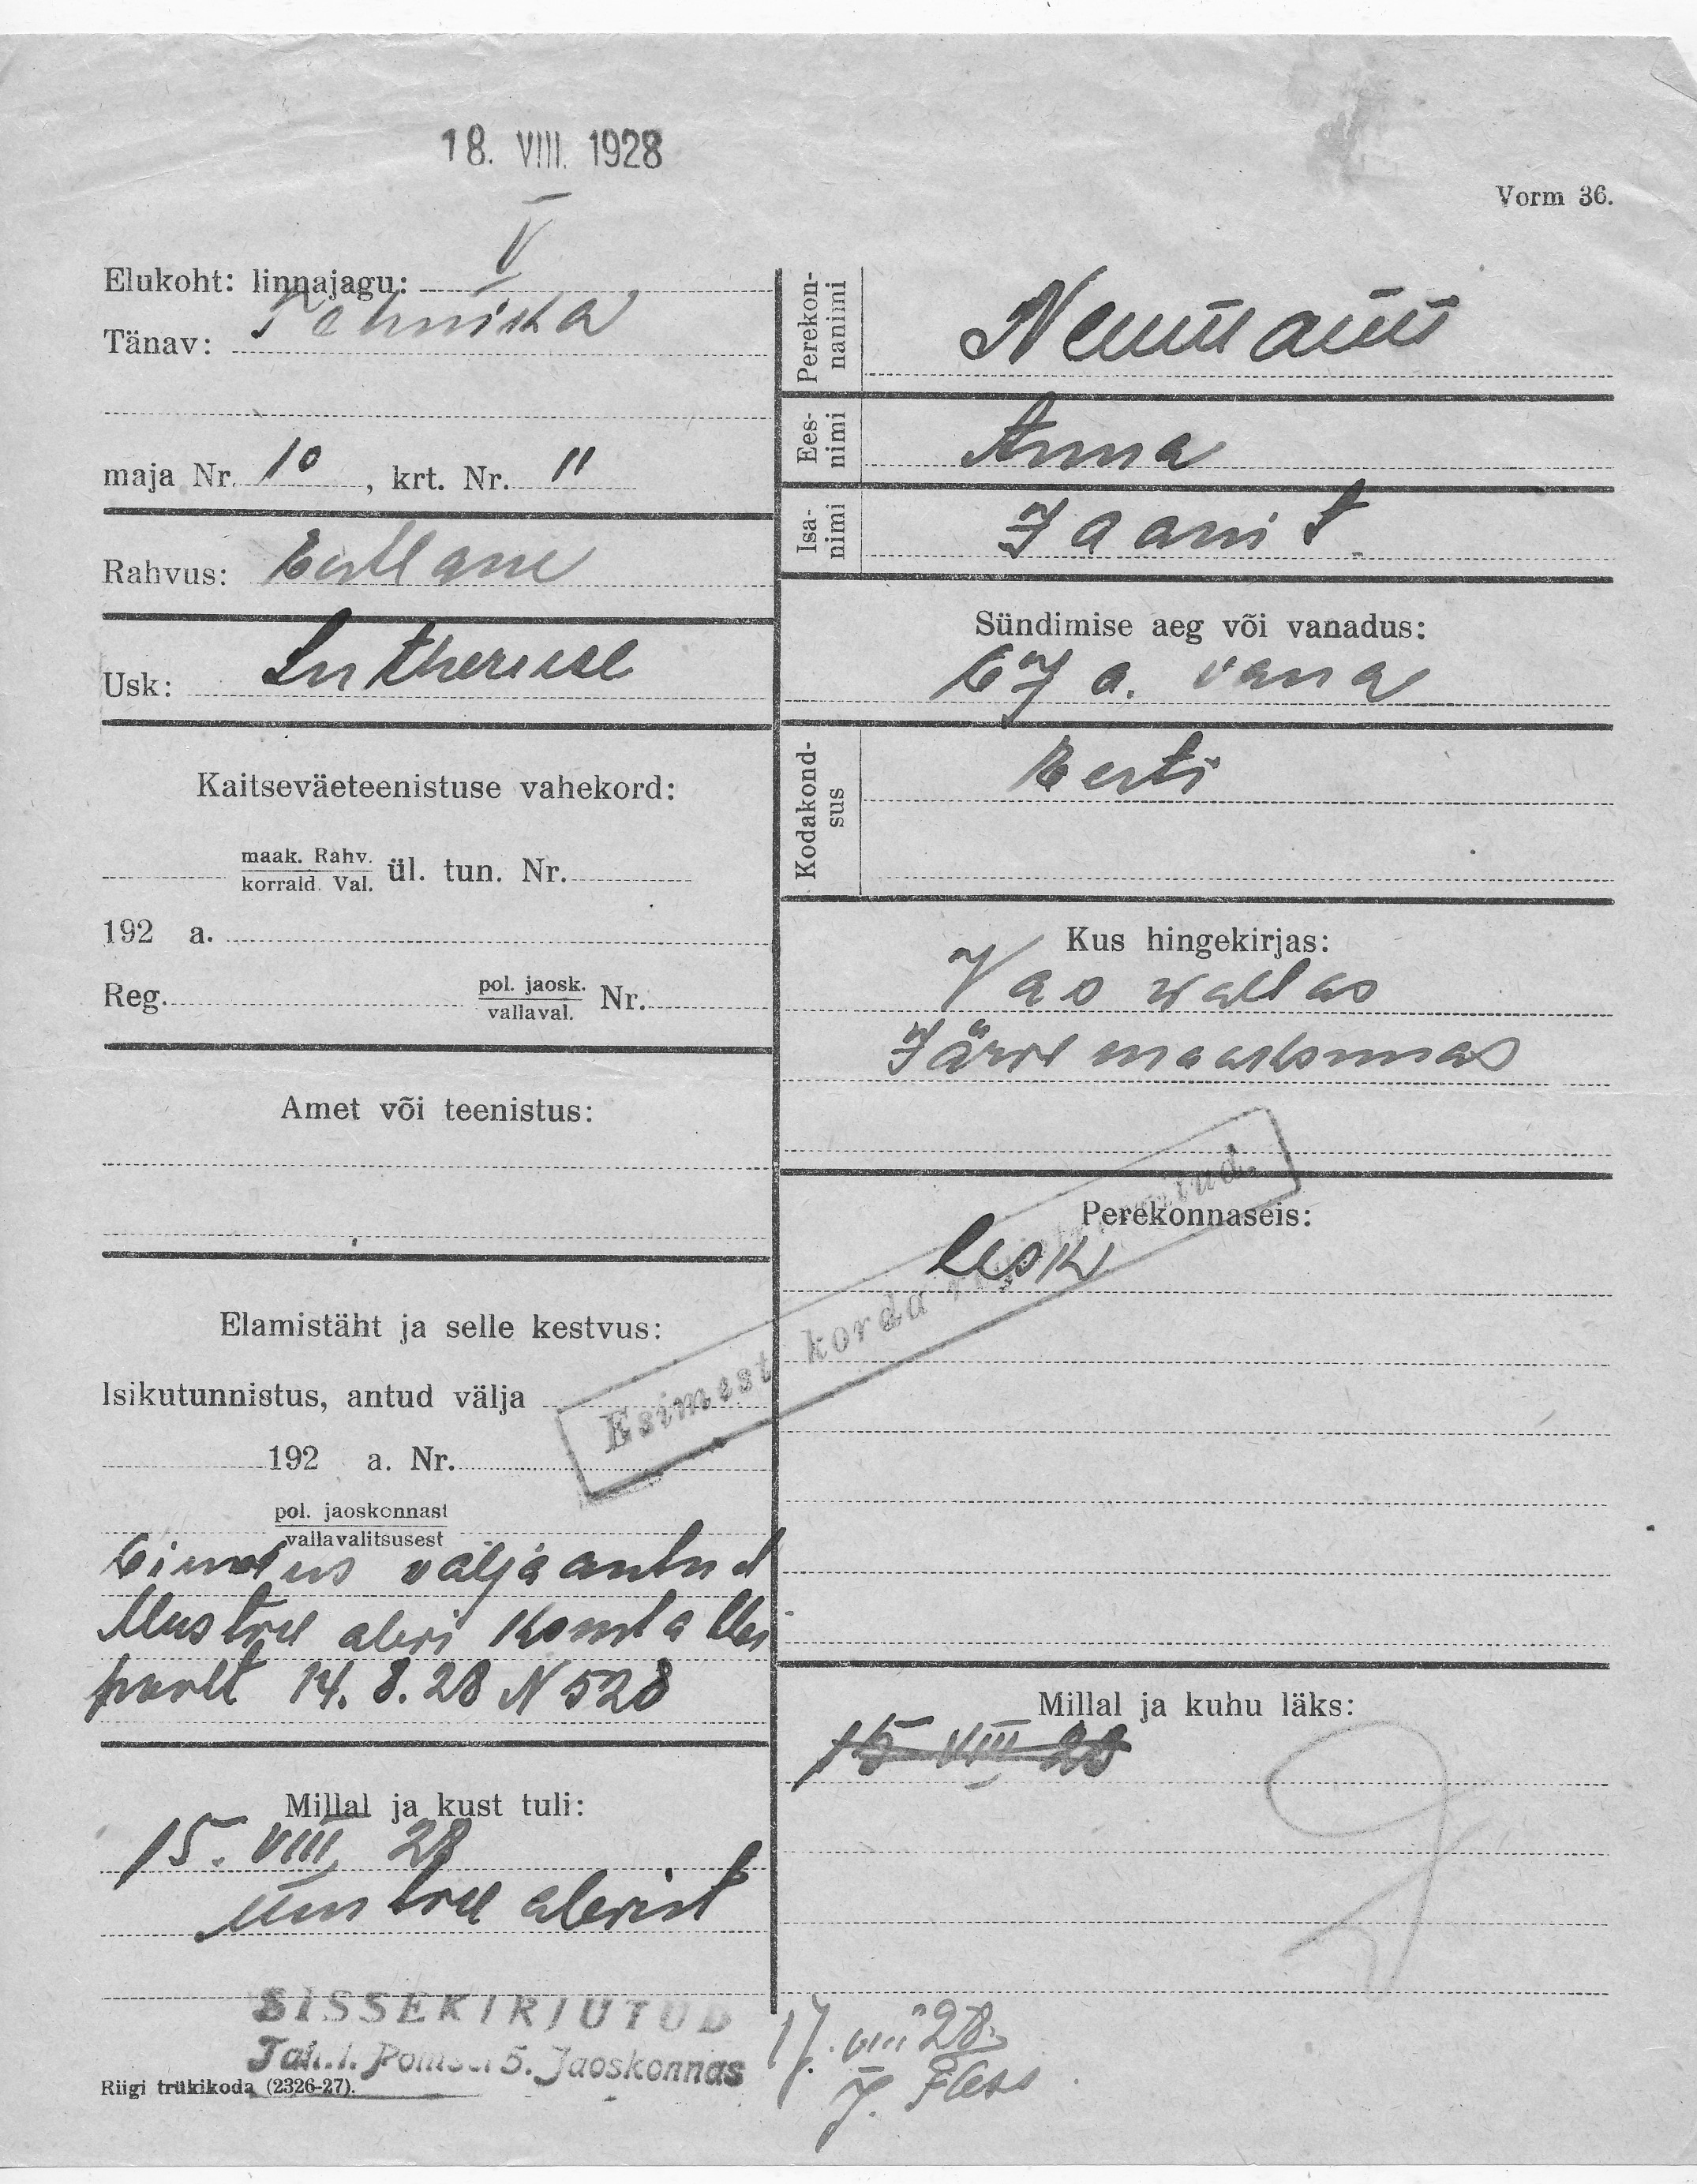 18. VIII. 1928
Vorm 36.
Elukoht: linnajagu: V
Tänav: Tehnika
maja Nr. 10, krt. Nr. 11
Rahvus: Eestlane
Usk: Lutheruse
Kaitseväeteenistuse vahekord:
maak. Rahv.
korrald. Val. ül. tun. Nr.
192 a.
Reg. pol. jaosk.
vallaval. Nr.
Amet või teenistus:
Elamistäht ja selle kestvus:
Isikutunnistus, antud välja
192 a. Nr.
pol. jaoskonnast
vallavalitsusest
välja antud
Mustvee alevi
poolt 14. 8. 28 N 528
Millal ja kust tuli:
15. VIII 28
Mustvee alevist
SISSEKIRJUTUD
5. Jaoskonnas
Riigi trükikoda (2326-27).
Perekon-
nanimi
Neumann
Ees-
nimi
Anna
Isa-
nimi
Jaani t.
Sündimise aeg või vanadus:
67 a. vana
Kodakond-
sus
Eesti
Kus hingekirjas:
Vao wallas
Järva maakonnas
Perekonnaseis:
lesk
Esimest korda
Millal ja kuhu läks:
15 VIII 28
17. VIII 28